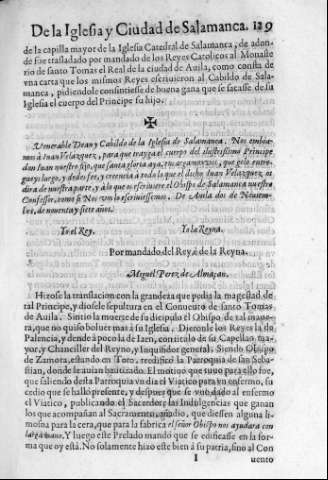 De la Iglesia y Ciudad de Salamanca. 129
de la capilla mayor de la Iglesia Catedral de Salamanca, de adon-
de fue trasladado por mandado de los Reyes Catolicos al Monaste
rio de santo Tomas el Real de la ciudad de Auila, como consta de
vna carta que los mismos Reyes escriuieron al Cabildo de Sala-
manca, pidiendole consintiesse de buena gana que se sacasse de su
Iglesia el cuerpo del Principe su hijo.
Venerable Dean y Cabildo de la Iglesia de Salamanca. Nos embia-
mos à Iuan Velazquez, para que trayga el cuerpo del ilustrissimo Principe
don Iuan nuestro hijo, que santa gloria aya,
guey: luego, y dedes fee, y creencia à todo lo que el dicho Iuan Velazquez os
dira de nuestra parte, y à lo que os escriuiere el Obispo de Salamanca nuestro
Confessor, como si Nos vos lo escriuiessemos. De Auila dos de Nouiem-
bre, de nouenta y siete años.
Yo el Rey. Yo la Reyna.
Por mandado del Rey, è de la Reyna.
Miguel Perez de Almaçan.
Hizose la translacion con la grandeza que pedia la magestad de
tal Principe, y diosele sepultura en el Conuento de santo Tomas
de Auila. Sintio la muerte de su dicipulo el Obispo de tal mane-
ra, que no quiso boluer mas à su Iglesia. Dieronle los Reyes la de
Palencia, y dende à poco la de Iaen, con titulo de su Capellan ma-
yor, y Chanciller del Reyno, y Inquisidor general. Siendo Obispo
de Zamora, estando en Toro, reedificò la Parroquia de san Sebas-
tian, donde le auian bautizado. El motiuo que tuuo para ello fue,
que saliendo desta Parroquia vn dia el Viatico para vn enfermo, su
cedio que se hallò presente, y despues que se vuo dado al enfermo
el Viatico, publicando el Sacerdote las Indulgencias que ganan
los que acompañan al Sacramento, añadio, que diessen alguna li-
mosna para la cera, que para la fabrica el señor Obispo nos ayudara con
larga mano. Y luego este Prelado mandò que se edificasse en la for-
ma que oy està. No solamente hizo este bien à su patria, sino al Con
I uento